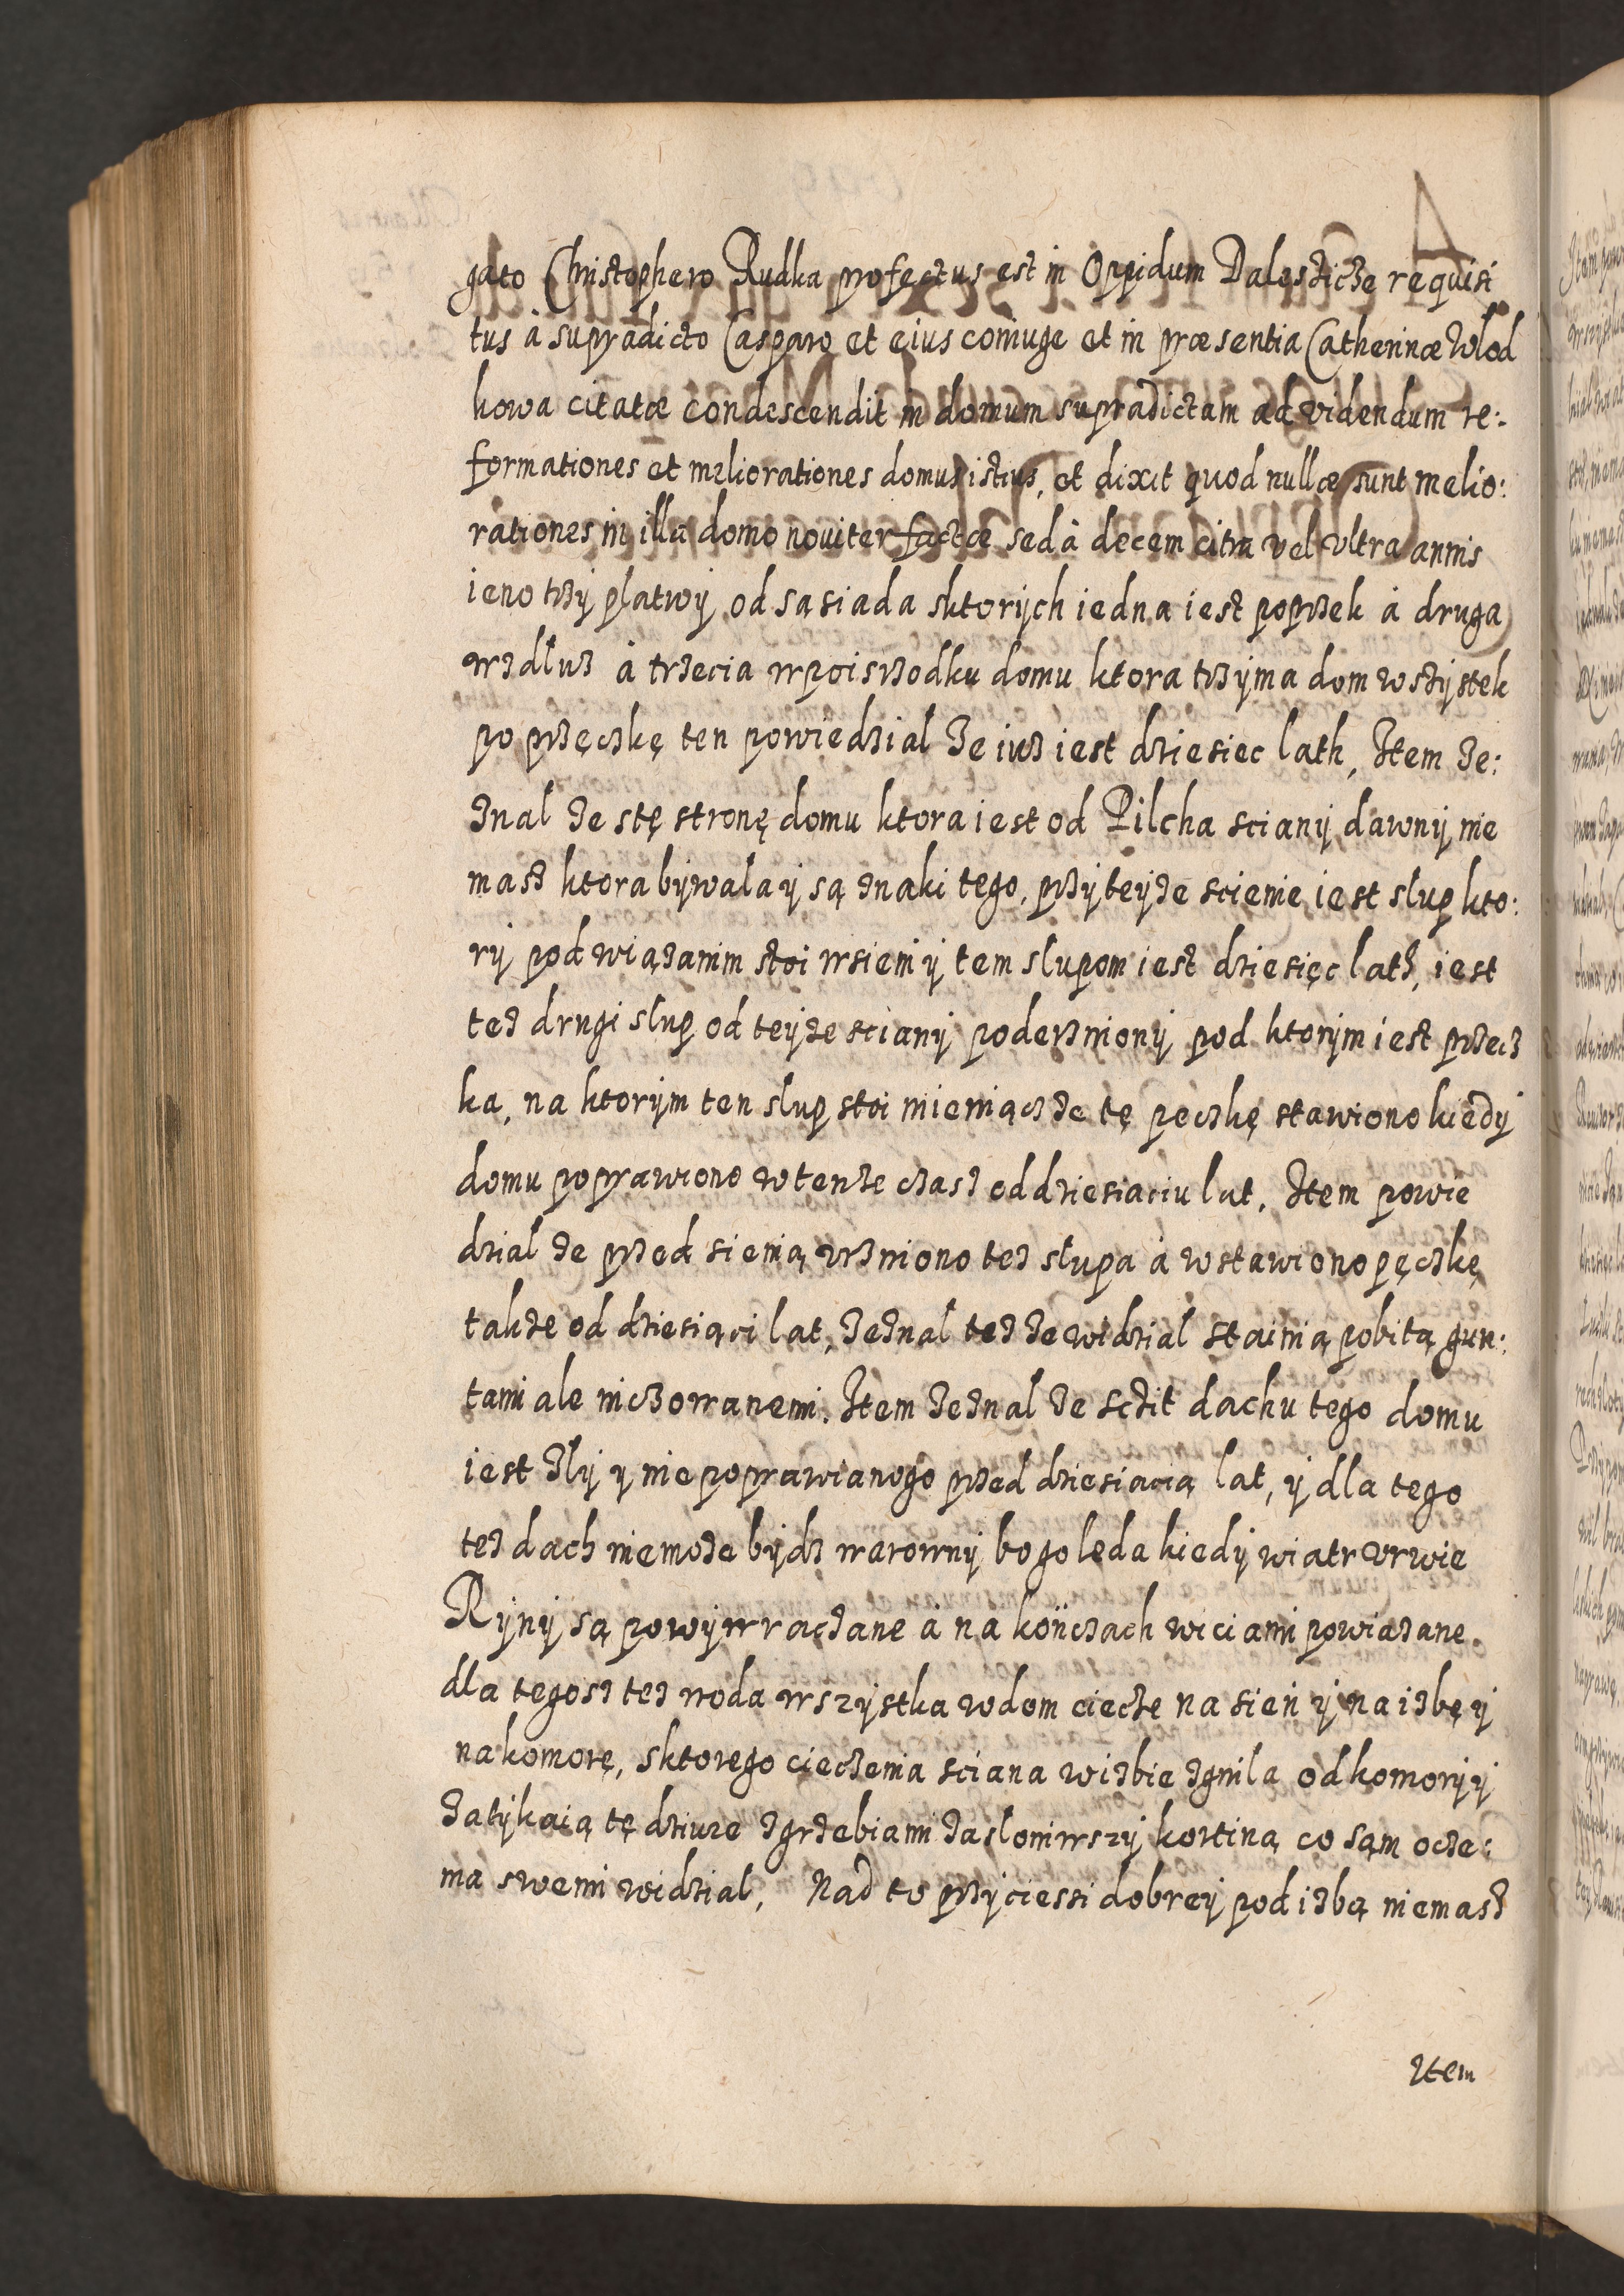 gato Christophero Rudka profectus est in Oppidum Daleszicze requisi
tus à supradicto Casparo et eius coniuge et in præsentia Catherinæ Wlod
kowa citatæ condescendit in domum supradictam ad videndum re:
formationes et meliorationes domus istius, et dixit quod nullæ sunt melio:
rationes in illa domo noviter factæ sed à decem citra vel vltra annis
ieno trzÿ platwÿ od sąsiada sktorÿch iedna iest poprzek à druga
wzdłuz à trzecia wpoisrzodku domu ktora trzÿma dom wszÿstek
po przęczkę ten powiedzial ze iuz iest dziesiec lath, Item ze:
znal ze stę stronę domu ktora iest od Pilcha scianÿ dawnÿ nie
masz ktora bÿwała ÿ są znaki tego, przÿ teÿze scienie iest slup kto:
rÿ pod wiązanim stoi wsieni ÿ tem slupom iest dziesięc lath, iest
tez drugi slup od teÿze scianÿ poderznionÿ pod ktorÿm iest przecz
ka, na ktorÿm ten slup stoi mieniącz ze tę peczkę stawiono kiedÿ
domu poprawiono wtenze czasz od dziesiaciu lat. Item powie
dzial ze przed sienią vrzniono tez słupa à wstawiono pęczkę
takze od dziesiąci lat, zeznal tez ze widzial stainią pobitą gun:
tami ale niczowanemi. Item zeznal ze sczit dachu tego domu
iest zlÿ ÿ nie poprawianogo przed dziesiacią lat, ÿ dla tego
tez dach niemoze bÿdz warownÿ bo goleda kiedÿ wiatr vrwie
Rÿnÿ są powÿwraczane à na kończach wiciami powiazane.
dla tegosz tez woda wszÿstka wdom ciecze na sień ÿ na izbę ÿ
na komorę, sktorego cieczenia sciana wizbie zgnila od komorÿ ÿ
zatÿkaią tę dziure zgrzebiami zasloniwszÿ kortiną co sąm ocze:
ma swemi widzial, Nad to przÿciessi dobreÿ pod izbą niemasz
Item